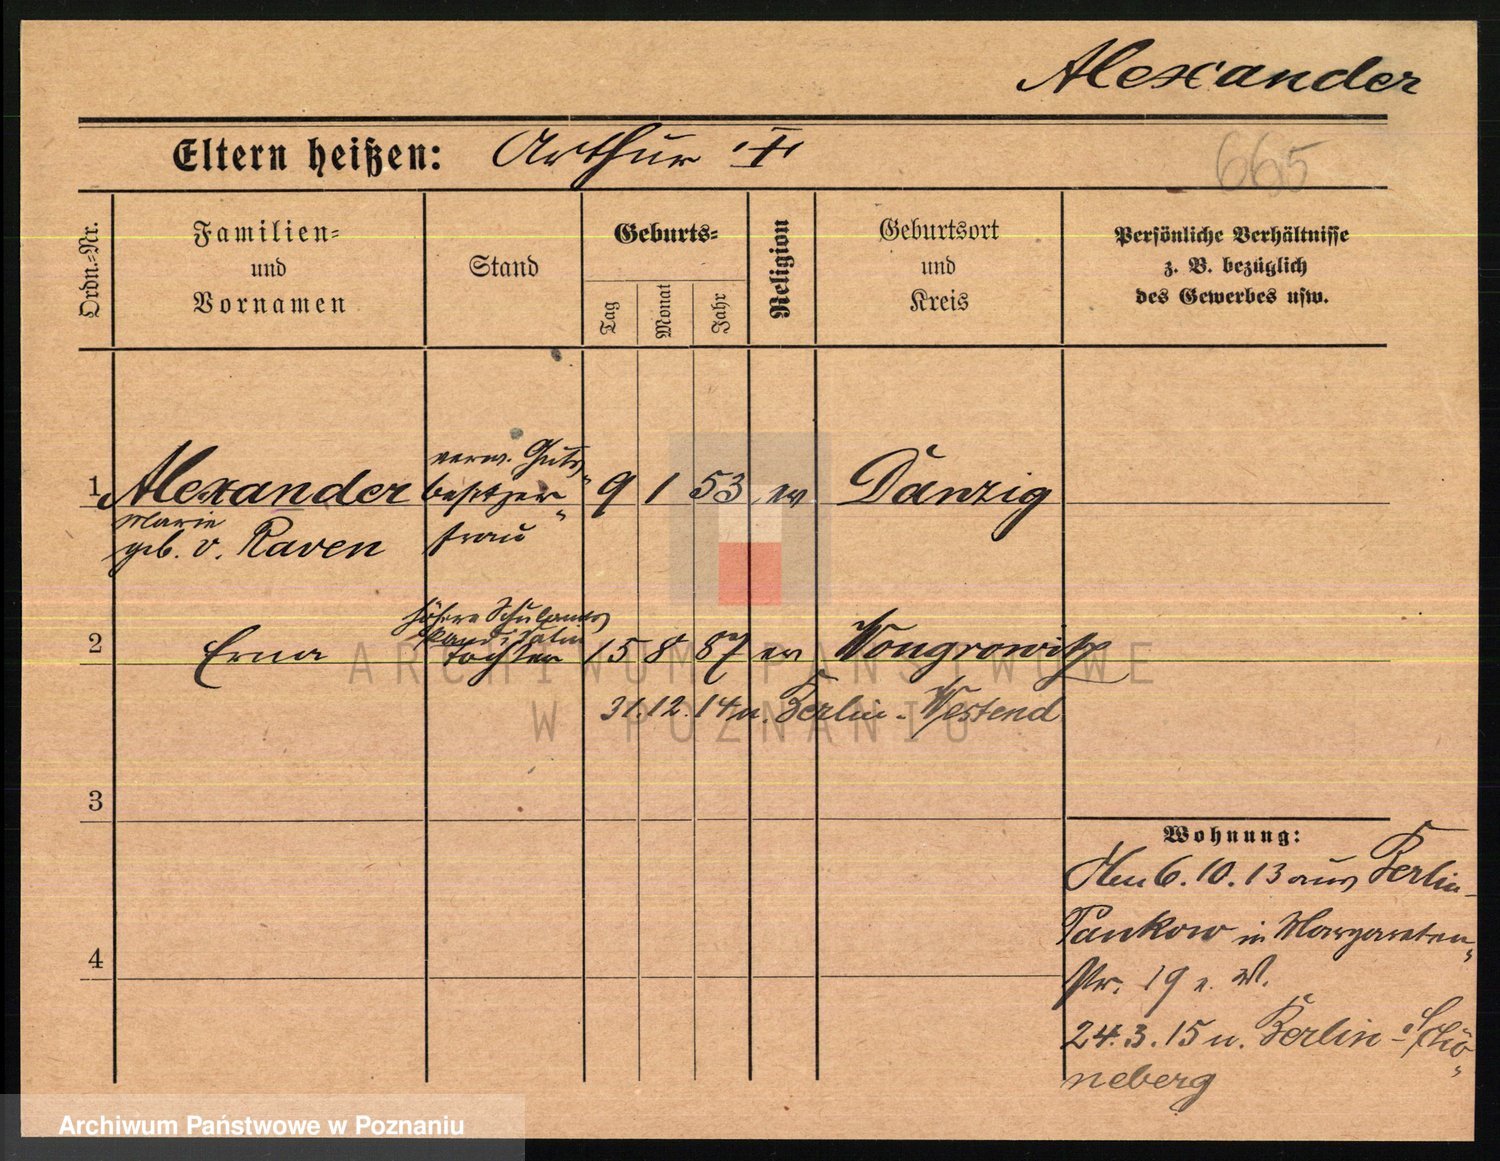 Alexander
Eltern heißen: Arthur †
665
Ordn.-Nr.
Familien-
und
Vornamen
Stand
Geburts-
Tag
Monat
Jahr
Religion
Geburtsort
und
Kreis
Persönliche Verhältnisse
z. B. bezüglich
des Gewerbes usw.
verw. Guts-
1 Alexander besitzer- 9 1 53 ev Danzig
Marie
geb. v. Raven frau
höhere Schulamts
kandidatin
2 Erna Tochter 15 8 87 ev Wongrowitz
31.12.14 n. Berlin-Westend
3
Wohnung:
6.10.13 aus Berlin-
Pankow in Margareten-
4
str. 19 e. W.
24.3.15 n. Berlin-Schö-
neberg
ARCHIWUM PAŃSTWOWE
W POZNANIU
Archiwum Państwowe w Poznaniu